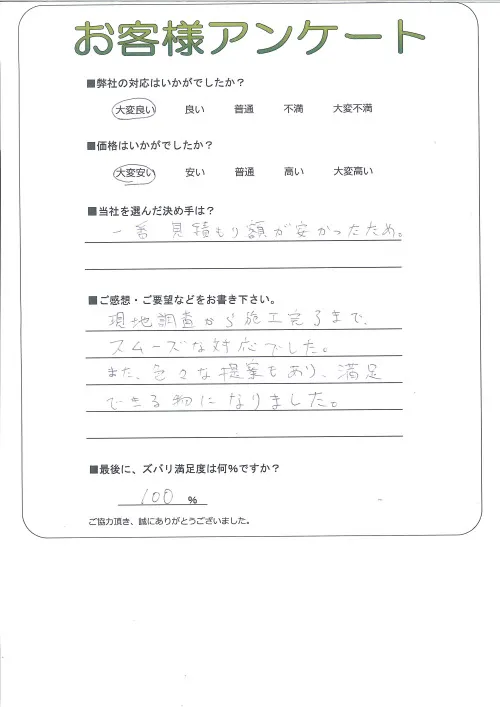 お客様アンケート
■弊社の対応はいかがでしたか？
大変良い 良い 普通 不満 大変不満
■価格はいかがでしたか？
大変安い 安い 普通 高い 大変高い
■当社を選んだ決め手は？
一番 見積もり額が安かったため。
■ご感想・ご要望などをお書き下さい。
現地調査から施工完了まで、
スムーズな対応でした。
また、色々な提案もあり、満足
できる物になりました。
■最後に、ズバリ満足度は何％ですか？
100 %
ご協力頂き、誠にありがとうございました。